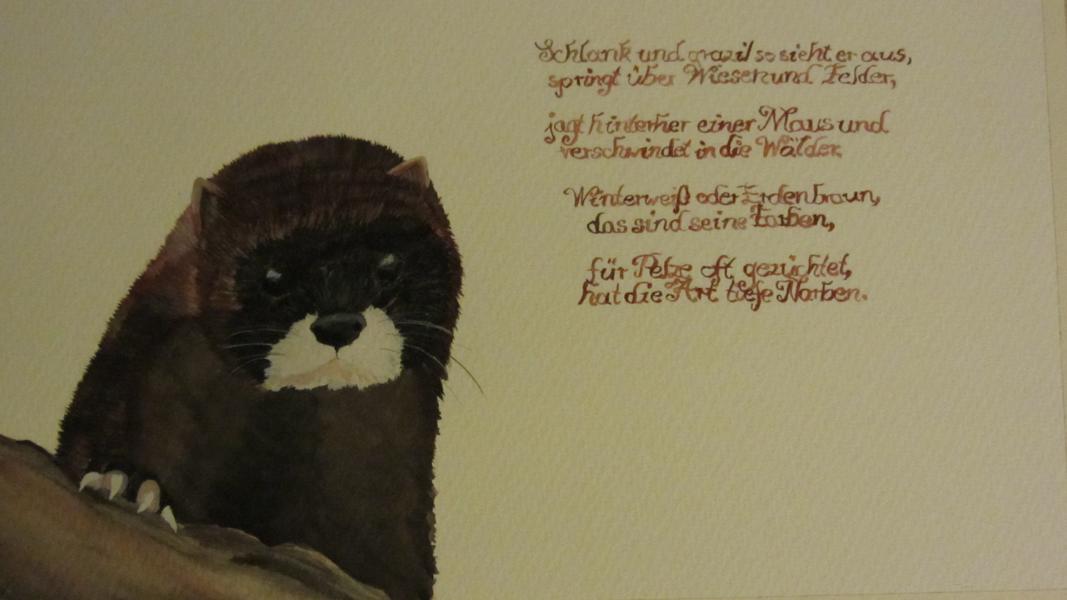 Schlank und grazil so sieht er aus,
springt über Wiesen und Felder,
jagt hinterher einer Maus und
verschwindet in die Wälder.
Winterweiß oder Erdenbraun,
das sind seine Farben,
für Pelze oft gezüchtet,
hat die Art tiefe Narben.